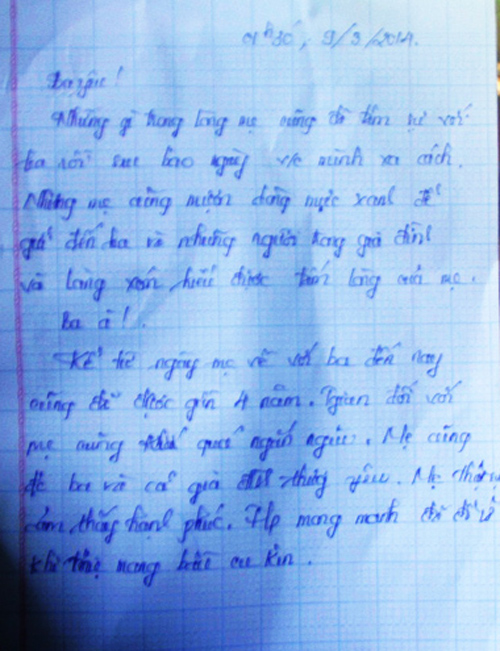 01h30, 9/3/2014.
Ba yêu!
Những gì trong lòng mẹ cũng đã tâm sự với
ba rồi sau bao ngày v/c mình xa cách.
Nhưng mẹ cũng mượn dòng mực xanh để
gửi đến ba và những người trong gia đình
và làng xóm hiểu được tấm lòng của mẹ.
Ba à!.
Kể từ ngày mẹ về với ba đến nay
cũng đã được gần 4 năm. Thời gian đối với
mẹ cũng quá ngắn ngủi. Mẹ cũng
ba và cả gia đình thương yêu. Mẹ
cảm thấy hạnh phúc. Hp mong manh đã
khi mẹ mang bầu cu Kin.